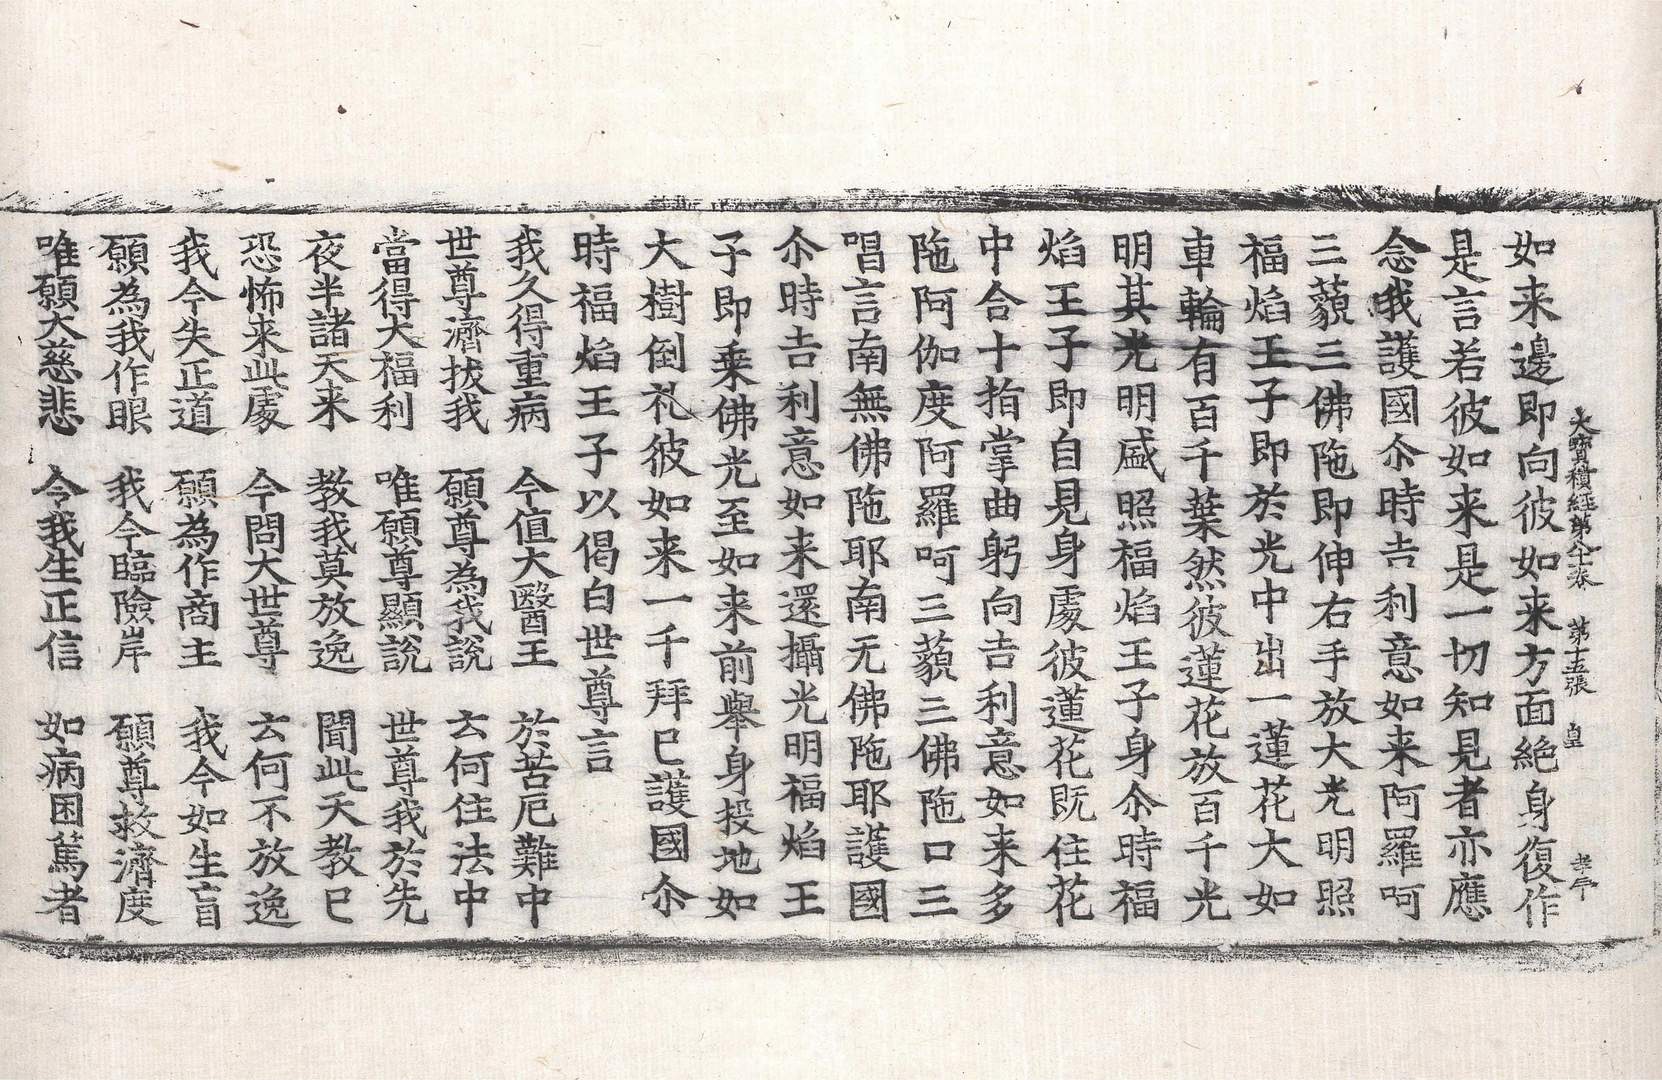 大寶積經第八十一卷 第十五張 皇 孝年
如来邊即向彼如来方面絶身復作
是言若彼如来是一切知見者亦應
念我護國尒時吉利意如来阿羅呵
三藐三佛陁即伸右手放大光明照
福焰王子即於光中出一蓮花大如
車輪有百千葉然彼蓮花放百千光
明其光明盛照福焰王子身尒時福
焰王子即自見身處彼蓮花既住花
中合十指掌曲躬向吉利意如来多
陁阿伽度阿羅呵三藐三佛陁口三
唱言南無佛陁耶南无佛陁耶護國
尒時吉利意如来還攝光明福焰王
子即乗佛光至如来前舉身投地如
大樹倒礼彼如来一千拜已護國尒
時福焰王子以偈白世尊言
我久得重病 今值大醫王 於苦厄難中
世尊濟拔我 願尊為我說 云何住法中
當得大福利 唯願尊顯說 世尊我於先
夜半諸天来 教我莫放逸 聞此天教已
恐怖来此處 今問大世尊 云何不放逸
我今失正道 願為作商主 我今如生盲
願為我作眼 我今臨險岸 願尊救濟度
唯願大慈悲 令我生正信 如病困篤者